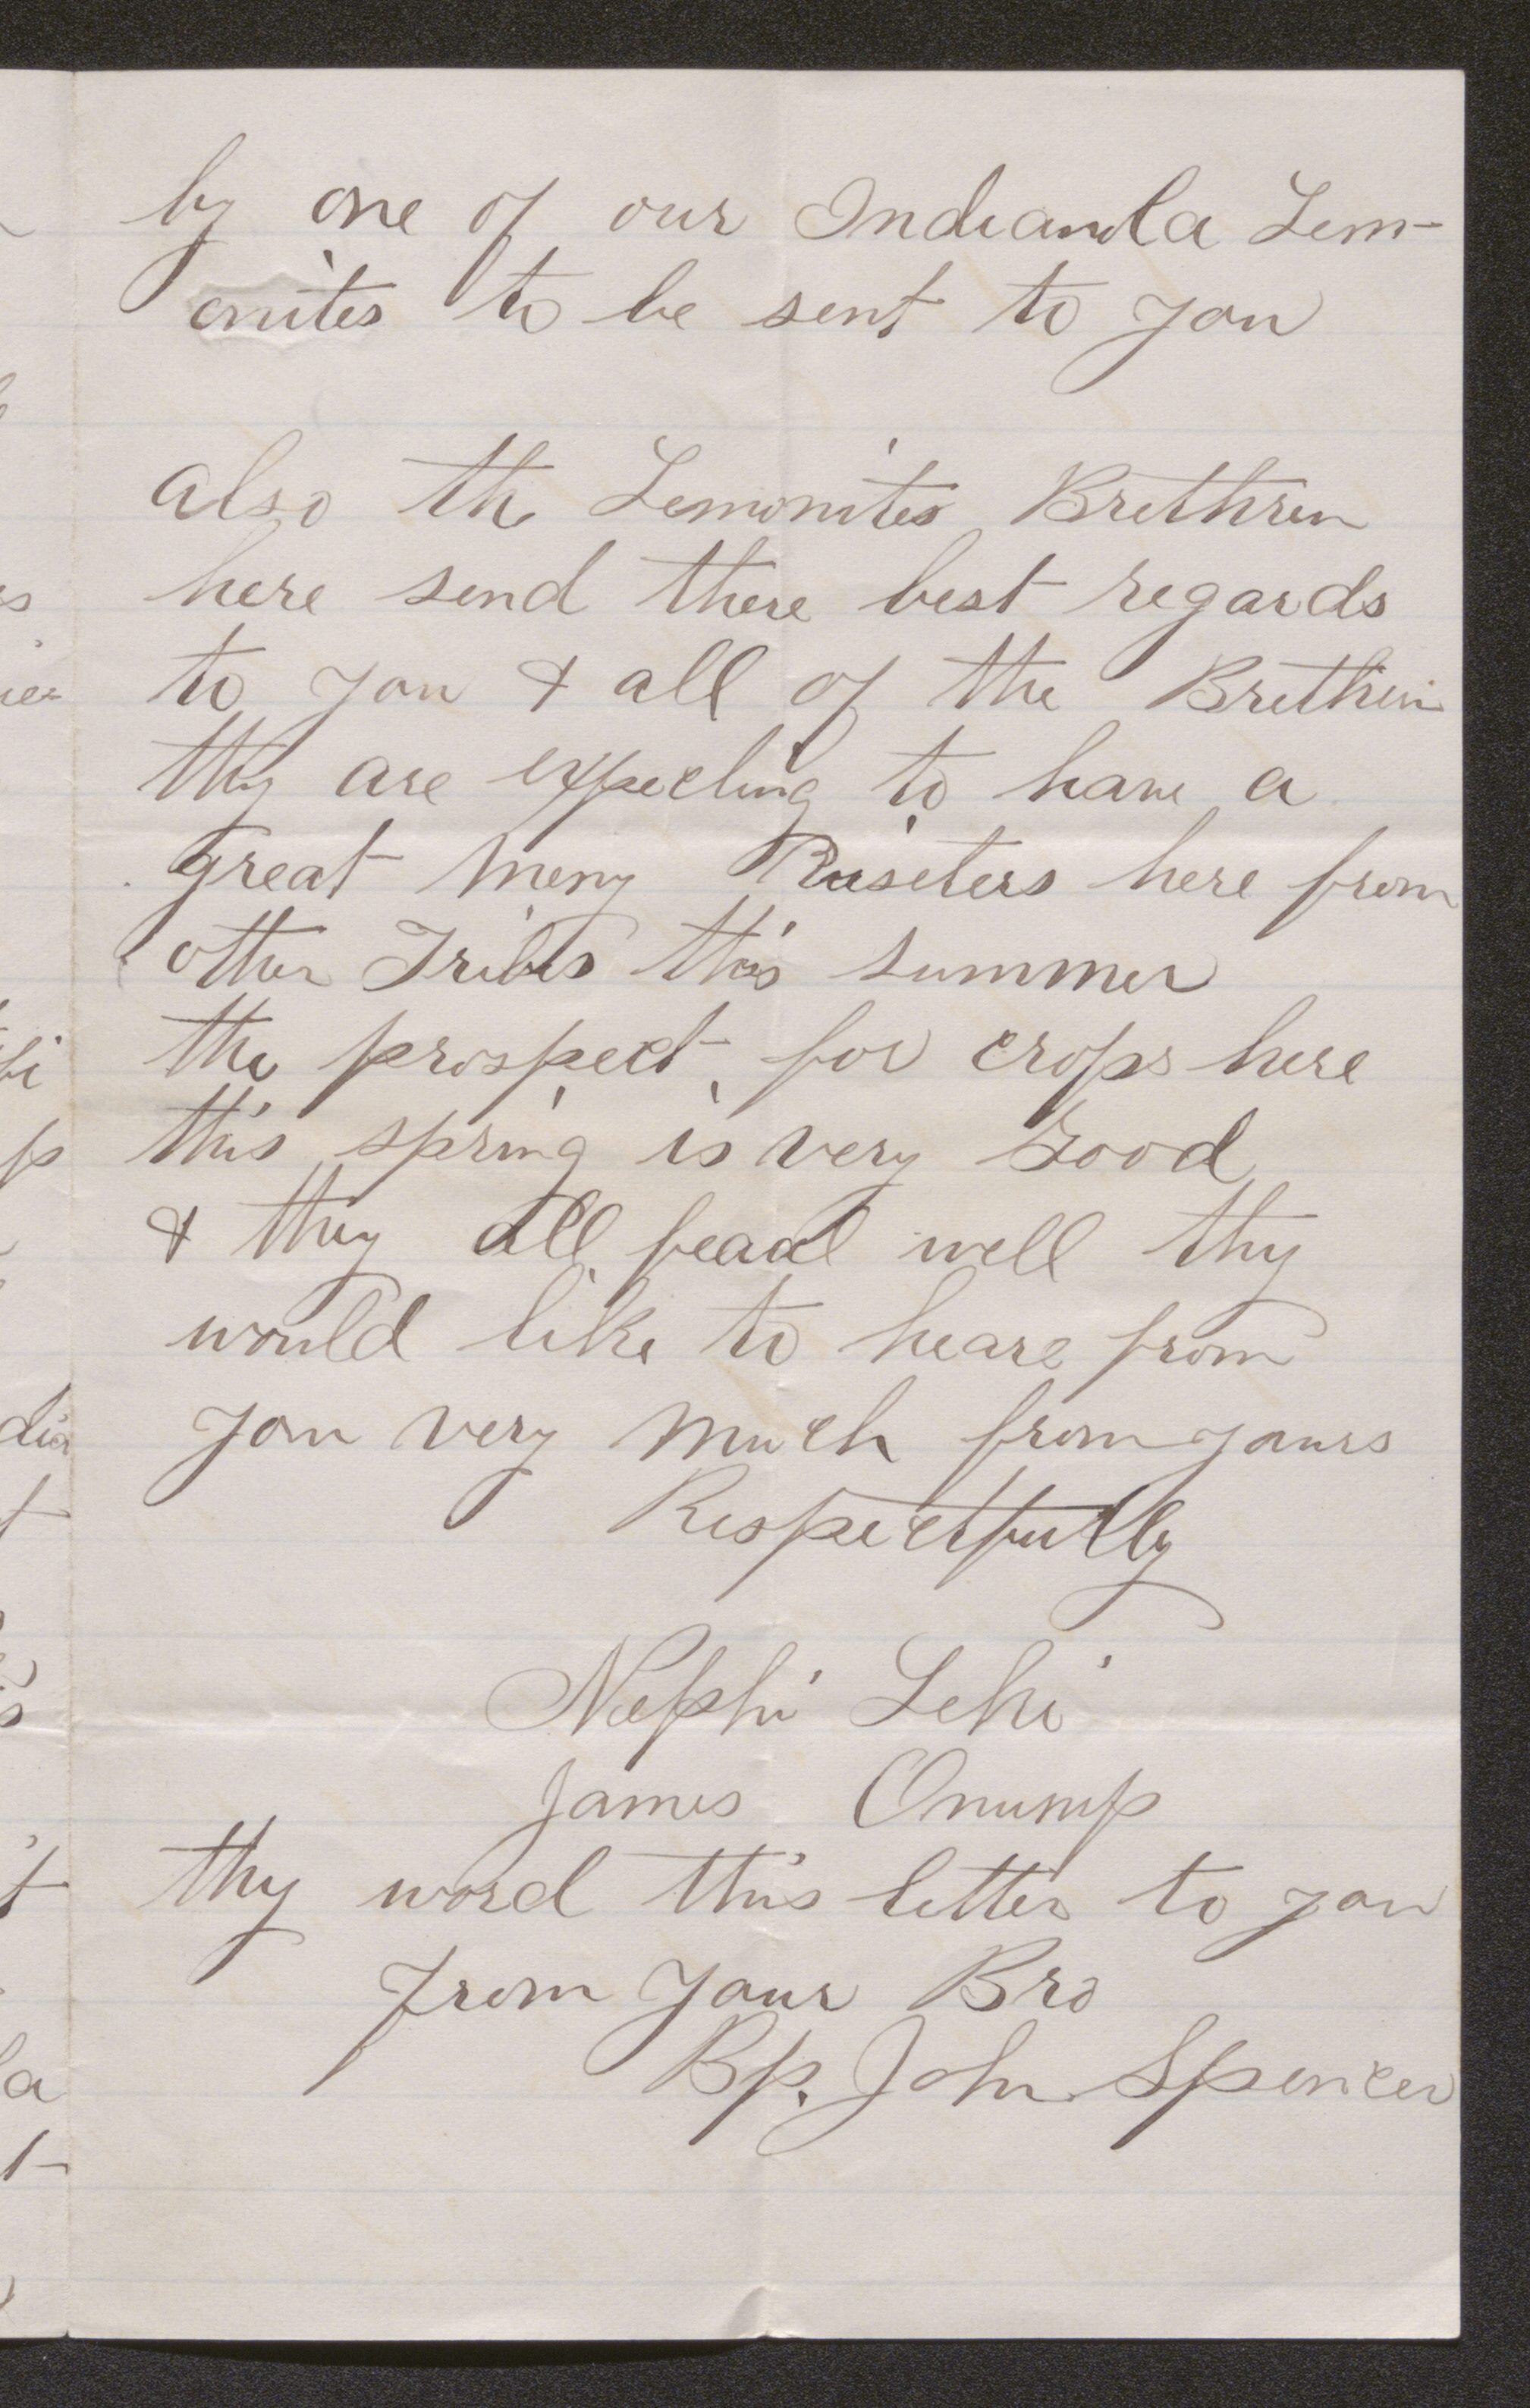 by one of our Indianola Lem-
onites to be sent to you
also the Lemonites Brethren
here send there best regards
to you & all of the Brethren
thy are expecting to have a
great meny here from
other Tribes this summer
the prospect for crops here
this spring is very good
& they all feaal well thy
would like to heare from
you very much from yours
Respectfully
Nephi Lehi
James Onump
thy word this letter to you
from your Bro
Bp. John Spencer